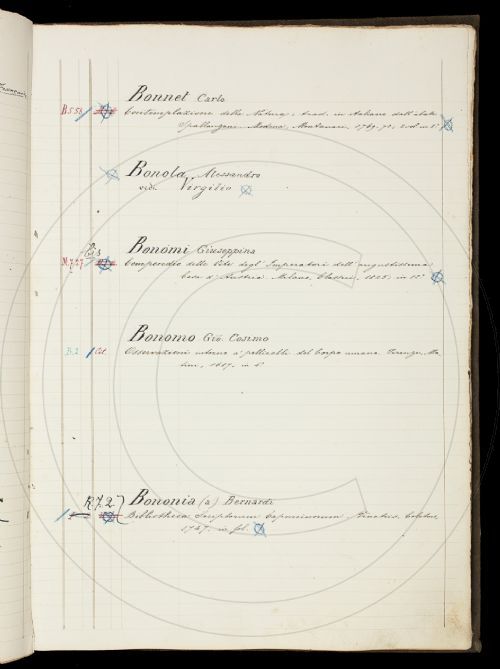 Bonnet Carlo
B.5.58 Contemplazione della Natura, trad. in italiano dell'abate
Spallanzani. Modena, Montanari, 1769-70, 2 vol. in 8°
Bonola Alessandro
vedi Virgilio
Bonomi Giuseppina
M.7.27 Compendio delle Vite degl'Imperatori dell'augustissima
Casa d'Austria. Milano, Classici, 1825. in 12°
Bonomo Gio. Cosimo
B.2 Osservazioni intorno a' pellicelli del Corpo umano. Firenze,
1687. in 4°
R.7.2 Bononia (a) Bernardi
Bibliotheca Scriptorum Capuccinorum. Venetiis,
1747. in fol.